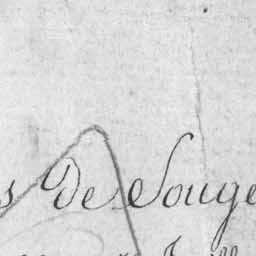 s de Souge